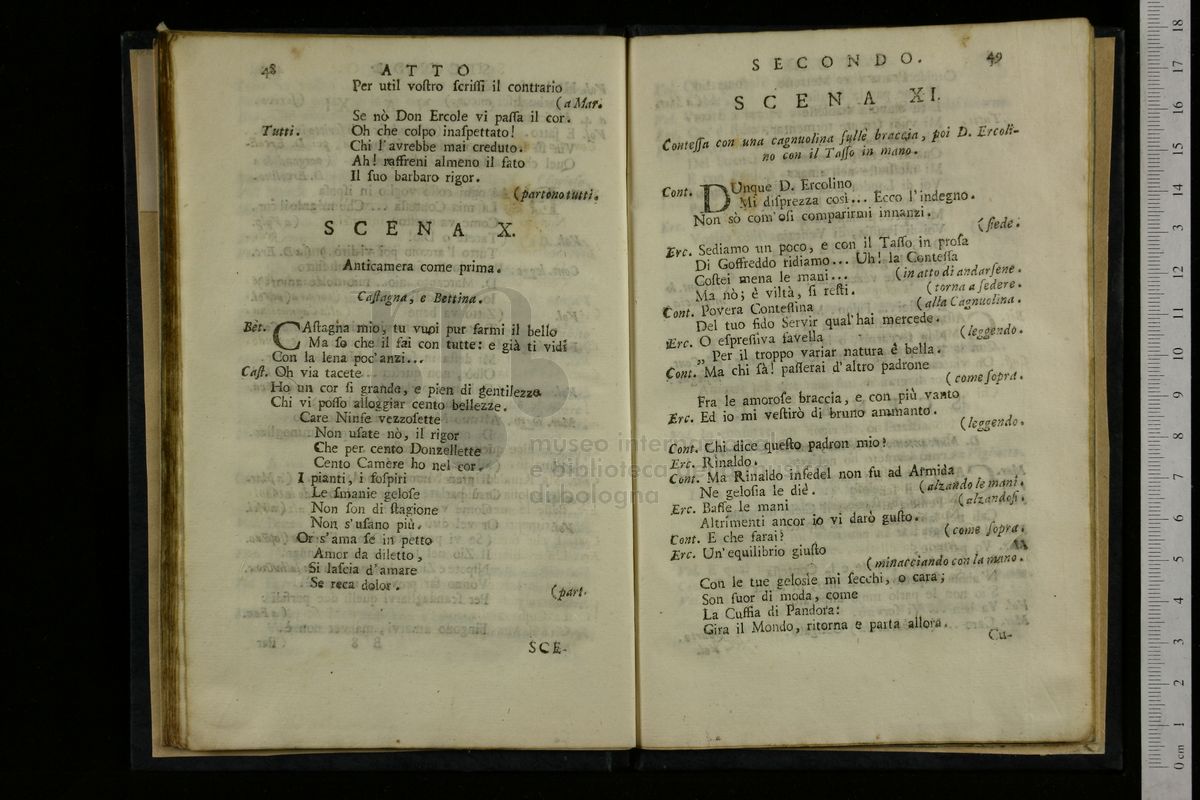 48 ATTO
Per util voſtro ſcriſſi il contrario
(a Mar.
Se nò Don Ercole vi paſſa il cor.
Tutti. Oh che colpo inaſpettato!
Chi l'avrebbe mai creduto.
Ah! raffreni almeno il fato
Il ſuo barbaro rigor.
(partono tutti.
SCENA X.
Anticamera come prima.
Caſtagna, e Bettina.
Bet. CAſtagna mio, tu vuoi pur farmi il bello
Ma ſo che il fai con tutte: e già ti vidi
Con la lena poc'anzi...
Caſt. Oh via tacete
Ho un cor ſi grande, e pien di gentilezza
Chi vi poſſo alloggiar cento bellezze.
Care Ninfe vezzoſette
Non uſate nò, il rigor
Che per cento Donzellette
Cento Camere ho nel cor.
I pianti, i ſoſpiri
Le ſmanie geloſe
Non ſon di ſtagione
Non s'uſano più.
Or s'ama ſe in petto
Amor da diletto,
Si laſcia d'amare
Se reca dolor.
(part.
SCE-
SECONDO. 49
SCENA XI.
Conteſſa con una cagnuolina ſulle braccia, poi D. Ercoli-
no con il Taſſo in mano.
Cont. DUnque D. Ercolino
Mi diſprezza così... Ecco l'indegno.
Non sò com'oſi comparirmi innanzi.
(ſiede.
Erc. Sediamo un poco, e con il Taſſo in proſa
Di Goffredo ridiamo... Uh! la Conteſſa
Coſtei mena le mani... (in atto di andarſene.
Ma nò; è viltà, ſi reſti. (torna a ſedere.
Cont. Povera Conteſſina (alla Cagnuolina.
Del tuo fido Servir qual'hai mercede.
Erc. O eſpreſſiva favella (leggendo.
„ Per il troppo variar natura è bella.
Cont. Ma chi ſà! paſſerai d'altro padrone
(come ſopra.
Fra le amoroſe braccia, e con più vanto
Erc. Ed io mi veſtirò di bruno ammanto.
(leggendo.
Cont. Chi dice queſto padron mio?
Erc. Rinaldo.
Cont. Ma Rinaldo infedel non fu ad Armida
Ne geloſia le diè. (alzando le mani.
Erc. Baſſe le mani (alzandoſi.
Altrimenti ancor io vi darò guſto.
Cont. E che farai? (come ſopra.
Erc. Un'equilibrio giuſto
(minacciando con la mano.
Con le tue geloſie mi ſecchi, o cara;
Son fuor di moda, come
La Cuffia di Pandora:
Gira il Mondo, ritorna e parta allora.
Cu-